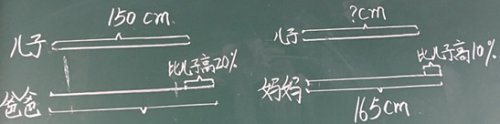 150 cm
儿子
比儿子高20%
爸爸
?cm
儿子
比儿子高10%
妈妈
165cm